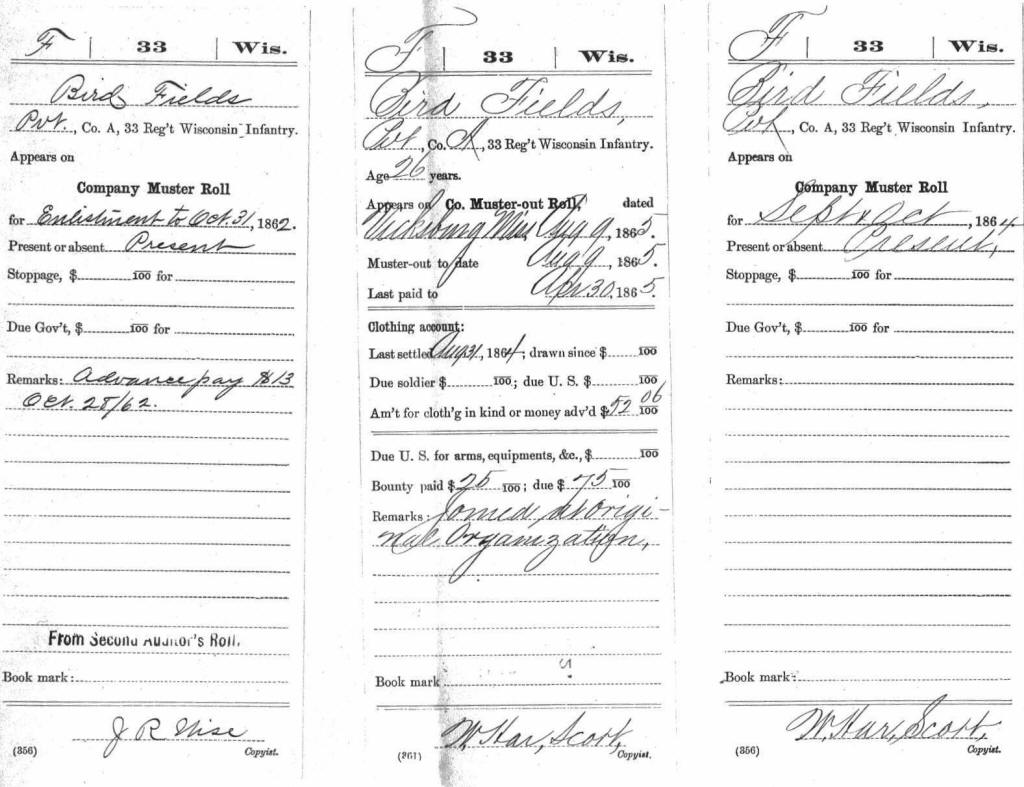 F | 33 | Wis.
Bird Fields
Pvt., Co. A, 33 Reg't Wisconsin Infantry.
Appears on
Company Muster Roll
for Enlistment to Oct. 31, 1862.
Present or absent Present
Stoppage, $ 100 for
Due Gov't, $ 100 for
Remarks: Advance pay $13
Oct. 28/62.
From Second Auditor's Roll.
Book mark:
J R Wise
(356) Copyist.
F | 33 | Wis.
Bird Fields,
Pvt, Co. A, 33 Reg't Wisconsin Infantry.
Age 26 years.
Appears on Co. Muster-out Roll, dated
Vicksburg Miss, Aug 9, 1865.
Muster-out to date Aug 9, 1865.
Last paid to Apr 30, 1865.
Clothing account:
Last settled Aug 31, 1864; drawn since $ 100
Due soldier $ 100; due U. S. $ 100
Am't for cloth'g in kind or money adv'd $ 52 06 100
Due U. S. for arms, equipments, &c., $ 100
Bounty paid $ 25 100; due $ 75 100
Remarks: Joined at origi-
nal Organization,
Book mark
W. Har, Scott,
(361) Copyist.
F | 33 | Wis.
Bird Fields,
Pvt, Co. A, 33 Reg't Wisconsin Infantry.
Appears on
Company Muster Roll
for Sept & Oct, 1864.
Present or absent Present,
Stoppage, $ 100 for
Due Gov't, $ 100 for
Remarks:
Book mark:
W. Har, Scott,
(356) Copyist.